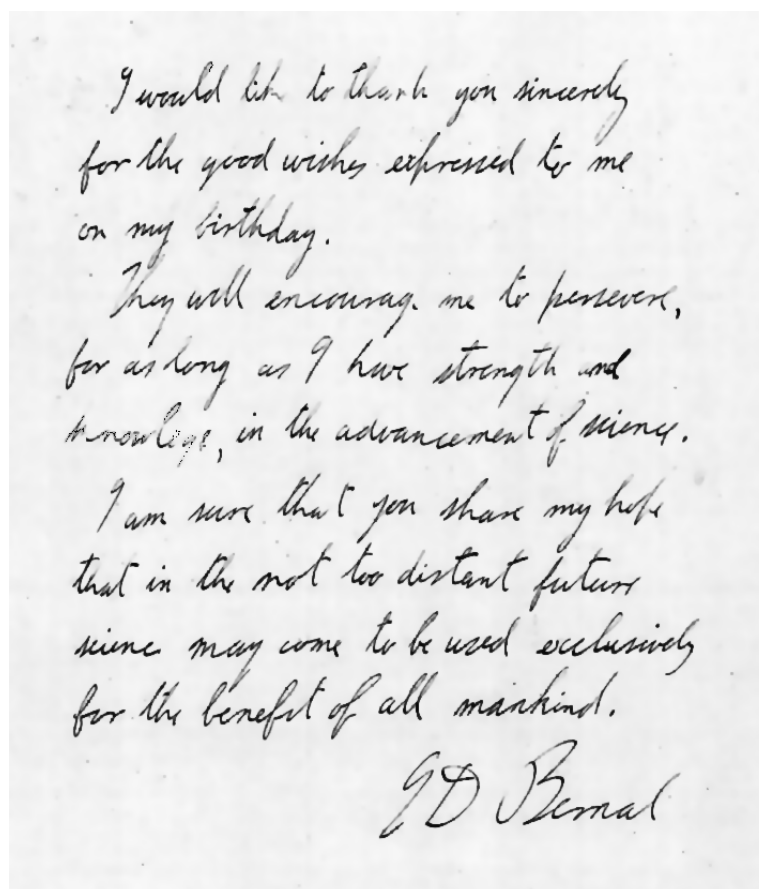 I would like to thank you sincerely
for the good wishes expressed to me
on my birthday.
They will encourage me to persevere,
for as long as I have strength and
knowlege, in the advancement of science.
I am sure that you share my hope
that in the not too distant future
science may come to be used exclusively
for the benefit of all mankind.
JD Bernal